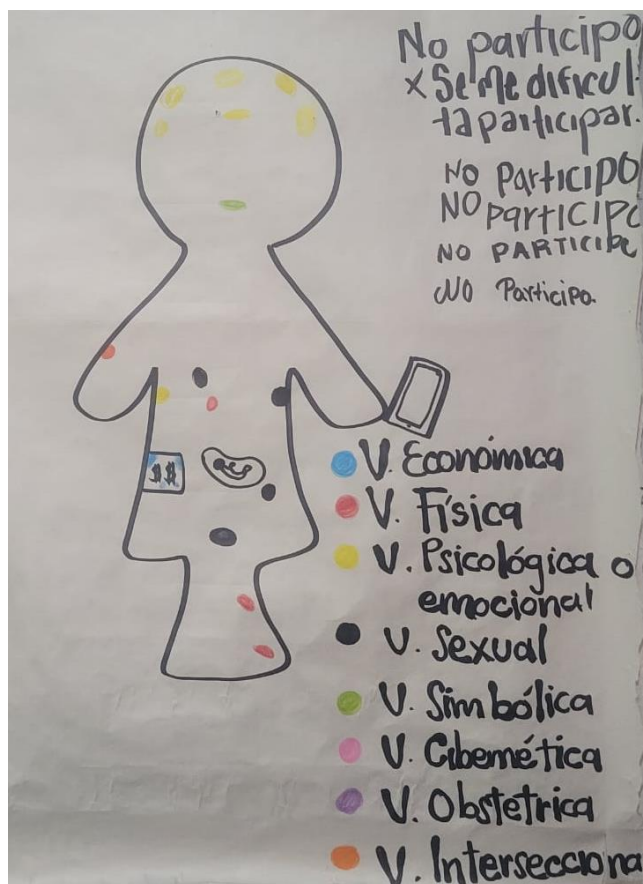 No participo
x Se me dificul-
ta participar.
No Participo
NO participo
NO PARTICIPO
No Participo.
$ $
V. Económica
V. Física
V. Psicológica o
emocional
V. Sexual
V. Simbólica
V. Cibernética
V. Obstetrica
V. Intersecciona